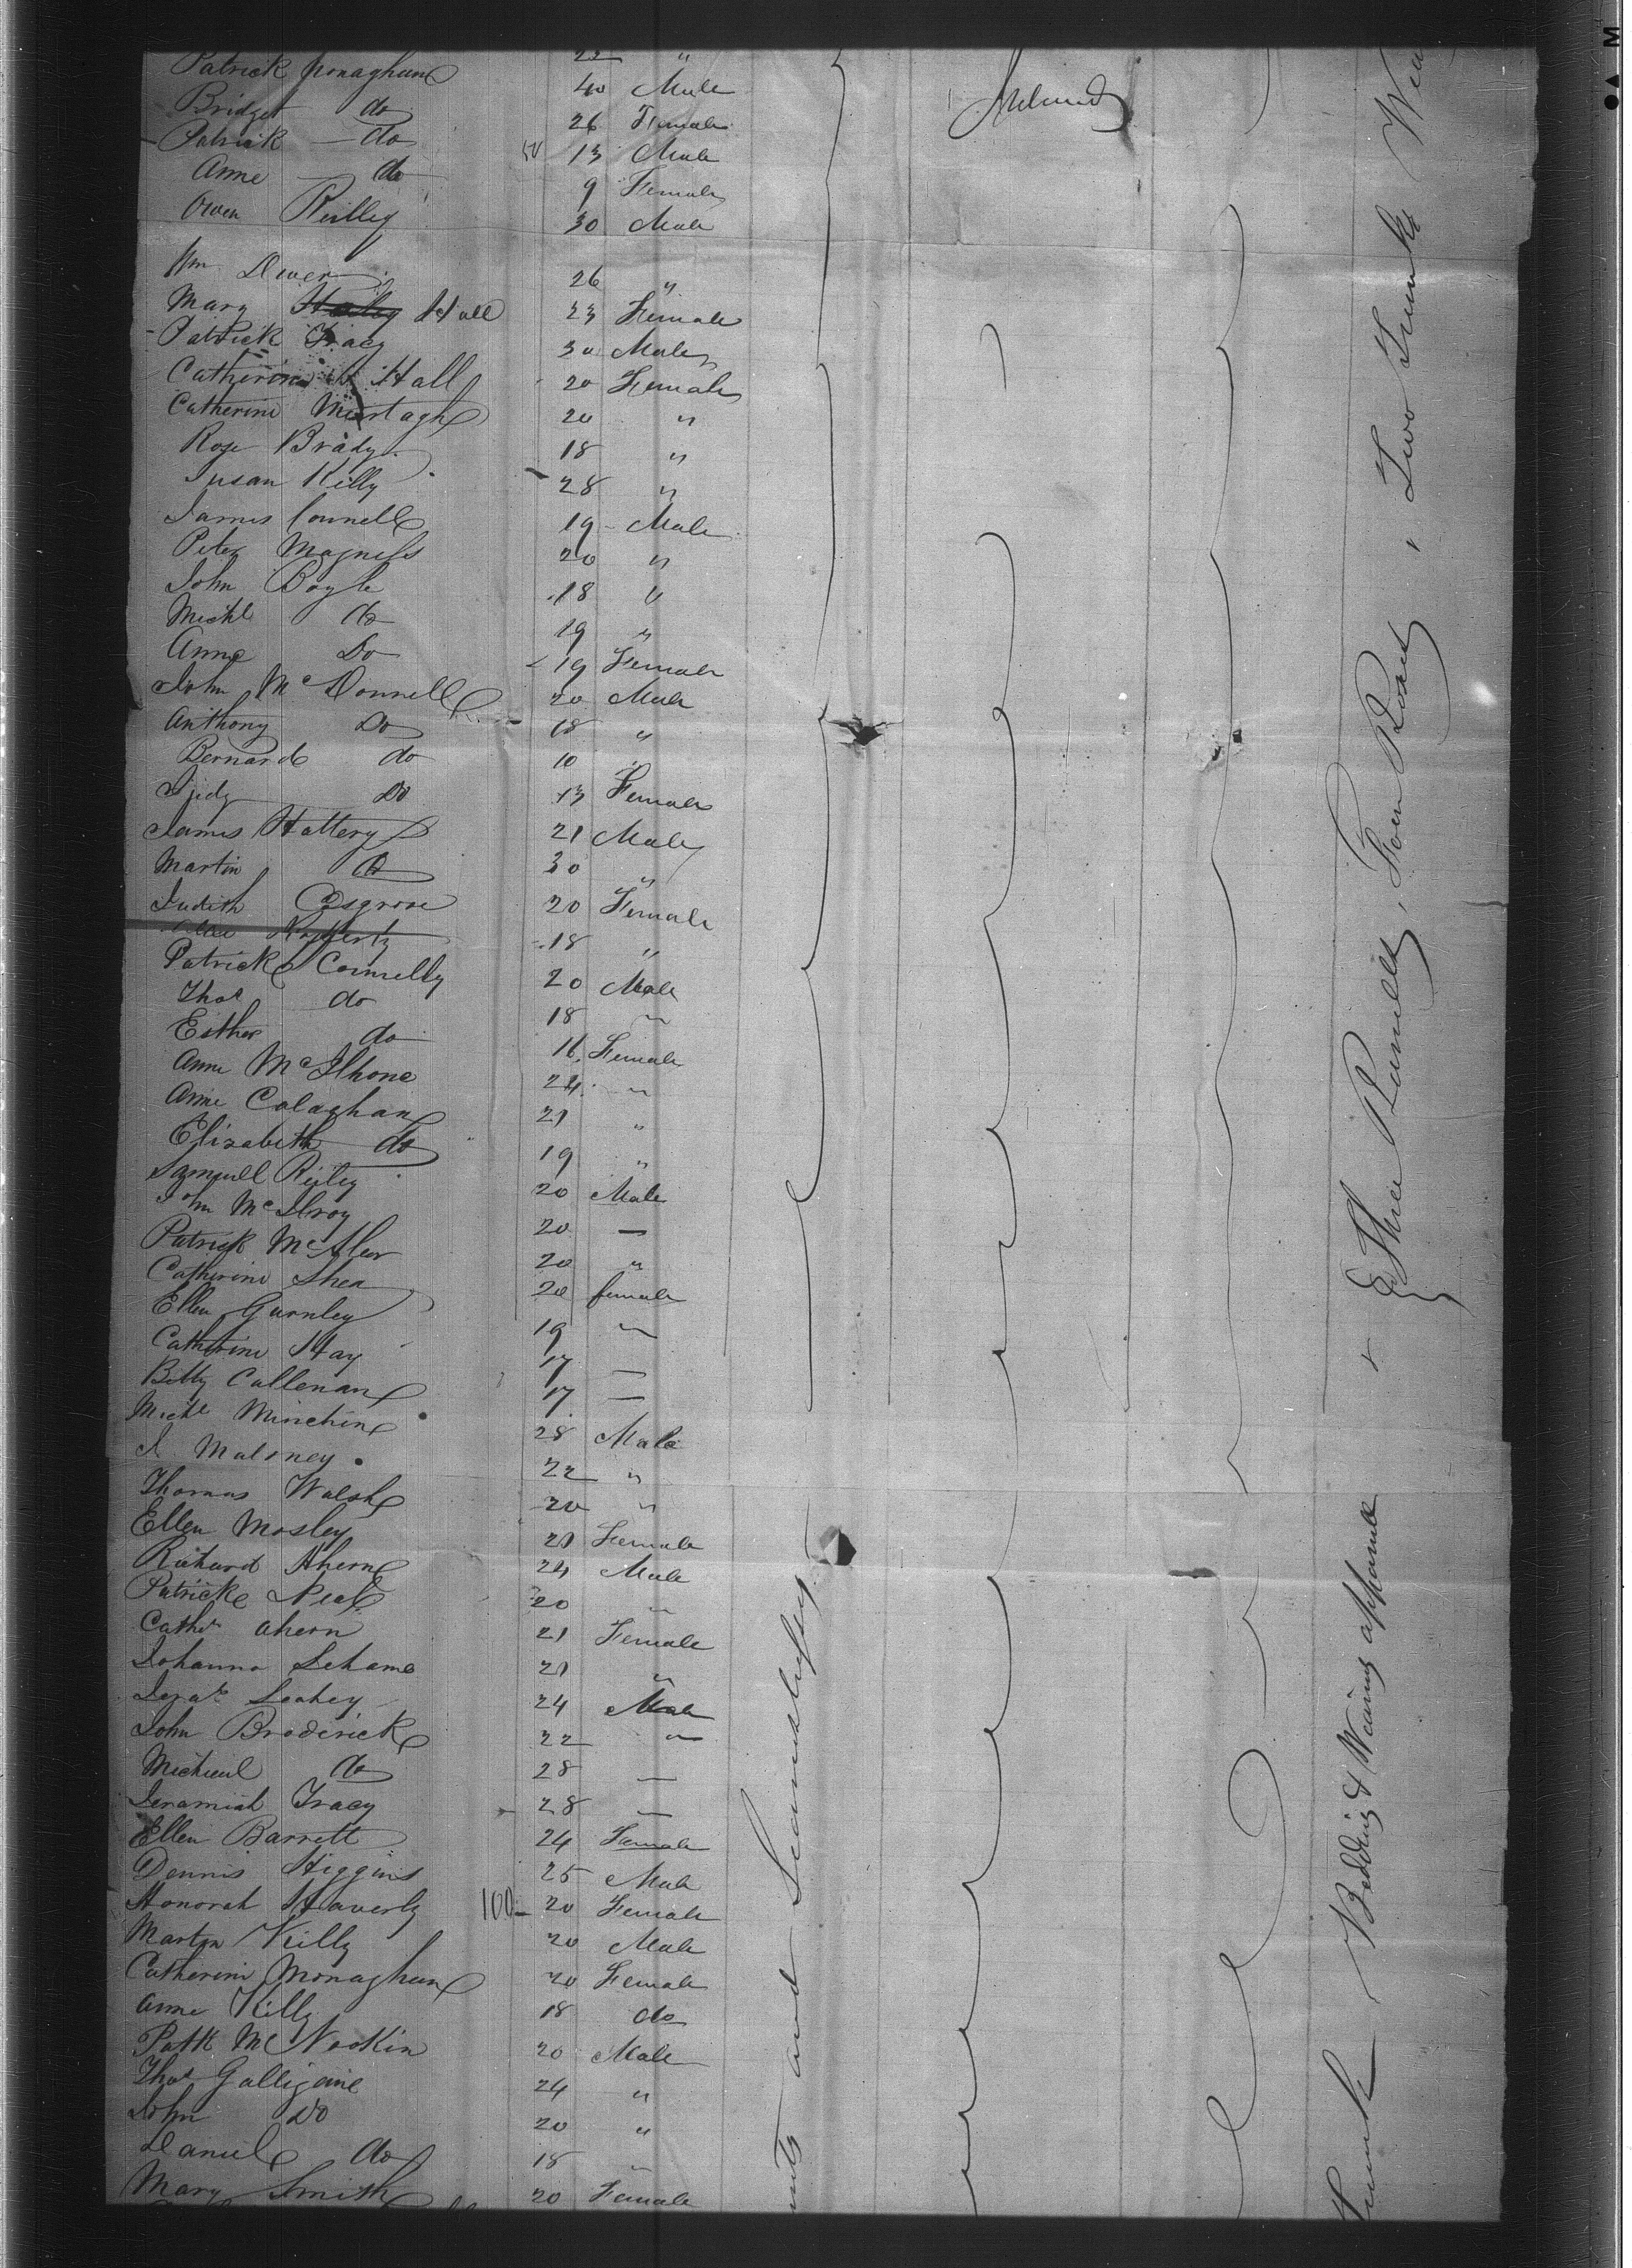 22 "
Patrick Monaghan 40 Male Ireland
Bridget do 26 Female
Patrick do 50 13 Male
Anne do 9 Female
Owen Reilley 30 Male
Wm Dwer 26 "
Mary Hall 23 Female
Patrick Tracy 30 Male
Catherine Hall 20 Female
Catherine Murtagh 20 "
Rose Brady 18 "
Susan Killy 28 "
James Connell 19 Male
Peter Magness 20 "
John Boyle 18 "
Michl do 19 "
Anne Do 19 Female
John McDonnell 20 Male
Anthony Do 18 "
Bernard do 10 "
Judy Do 13 Female
James Hattery 21 Male
Martin do 30 "
Judith Cosgrove 20 Female
Rafferty 18 "
Patrick Connelly 20 Male
Thos do 18 "
Esther do 16 Female
Anne McIlhone 24 "
Anne Calaghan 21 "
Elizabeth do 19 "
Samuell Reiley 20 Male
John McIlroy 20 "
Patrick McAleer 20 "
Catherine Shea 20 female
Ellen Gurnley 19 "
Catherine Hay 17 "
Betty Callenan 17 "
Michl Minchin 28 Male
J. Maloney 22 "
Thomas Walsh 20 "
Ellen Mosley 20 Female
Richard Ahern 24 Male
Patrick Neal 20 "
Cathe Ahern 21 Female
Johanna Lehame 20 "
Leahey 24 Male
John Broderick 22 "
Micheul do 28 "
Jeramiah Tracy 28 "
Ellen Barrett 24 Female
Dennis Higgins 25 Male
Honorah Haverly 100 20 Female
Martin Killy 20 Male
Catherine Monaghan 20 Female
Anne Killy 18 do
Patk McNookin 20 Male
Thos Galligane 24 "
John Do 20 "
Daniel do 18 "
Mary Smith 20 Female
and Seamstress
Three Bundells, Four Boxes, Two Trunks
Trunk Bedding & Wearing apparrell